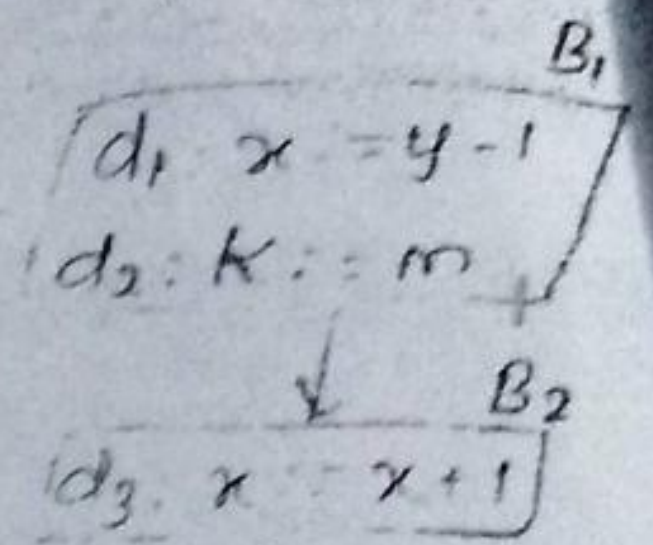 B1
d1 x := y - 1
d2 : K := m
B2
d3. x := x + 1